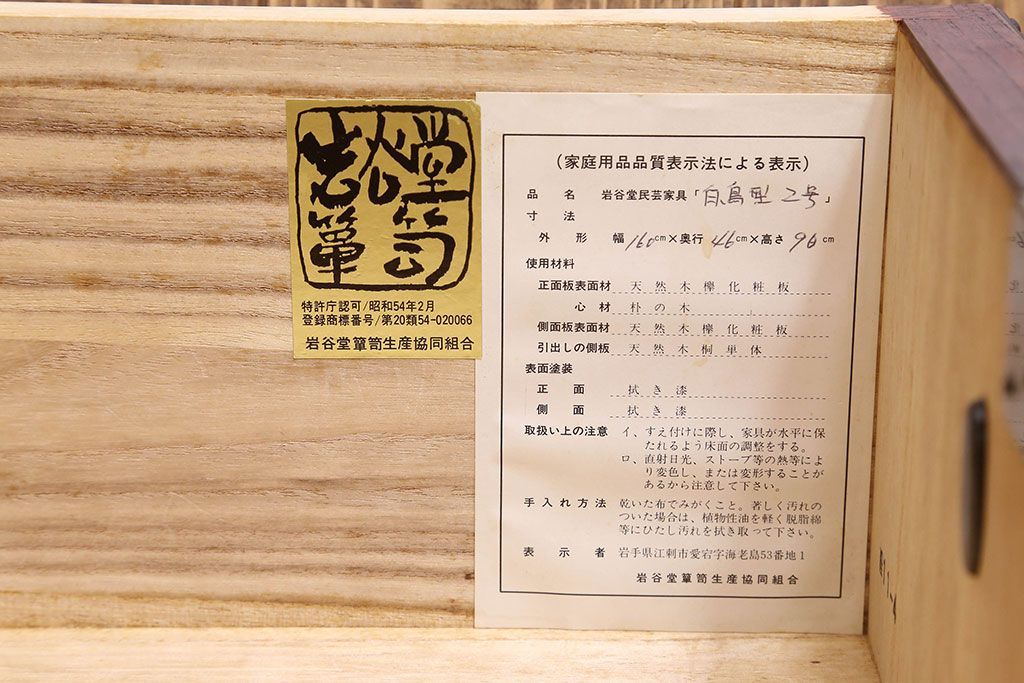 岩谷堂
箪笥
特許庁認可/昭和54年2月
登録商標番号/第20類54-020066
岩谷堂簞笥生産協同組合
(家庭用品品質表示法による表示)
品名 岩谷堂民芸家具「白鳥型 2号」
寸法
外形 幅160cm×奥行46cm×高さ96cm
使用材料
正面板表面材 天然木欅化粧板
心材 朴の木
側面板表面材 天然木欅化粧板
引出しの側板 天然木桐単体
表面塗装
正面 拭き漆
側面 拭き漆
取扱い上の注意 イ、すえ付けに際し、家具が水平に保
たれるよう床面の調整をする。
ロ、直射日光、ストーブ等の熱等によ
り変色し、または変形することが
あるから注意して下さい。
手入れ方法 乾いた布でみがくこと。著しく汚れの
ついた場合は、植物性油を軽く脱脂綿
等にひたし汚れを拭き取って下さい。
表示者 岩手県江刺市愛宕字海老島53番地1
岩谷堂簞笥生産協同組合